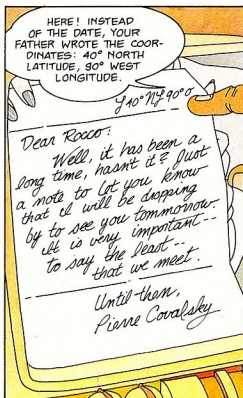 HERE! INSTEAD
OF THE DATE, YOUR
FATHER WROTE THE COOR-
DINATES: 40° NORTH
LATITUDE, 90° WEST
LONGITUDE.
40° N 90°
Dear Rocco:
Well, it has been a
long time, hasn't it? Just
a note to let you know
that I will be dropping
by to see you tommorrow.
It is very important--
to say the least--
that we meet.
Until then,
Pierre Covalsky